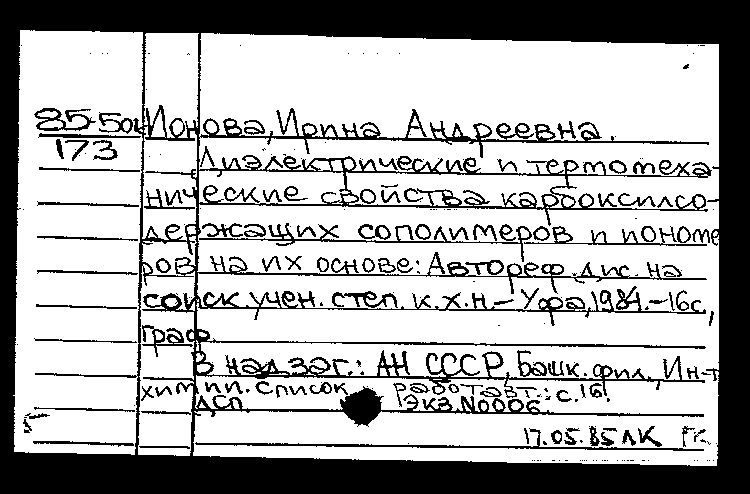 85-50к Ионова, Ирина Андреевна.
173
Диэлектрические и термомеха-
нические свойства карбоксилсо-
держащих сополимеров и иономе
ров на их основе: Автореф. дис. на
соиск. учен. степ. к.х.н. – Уфа, 1984. – 16с.,
граф.
В надзаг.: АН СССР, Башк. фил., Ин-т
химии. Список работ авт.: с. 16.
ДСП. Экз. N0006.
17.05.85 ЛК